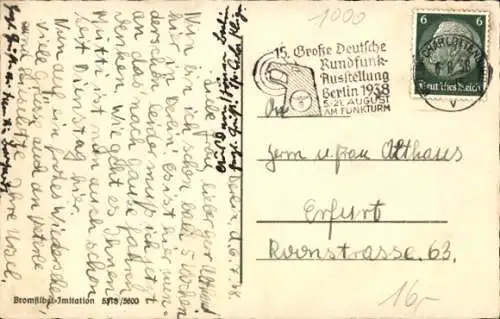 Berlin, d. 6.7.38.
Liebe Frau
Nun bin ich schon bald 5 Wochen
hier in Berlin, es ist hier wun-
derschön, leider muß ich jetzt
an das nach Hause fahren
denken. Wie geht es Ihnen?
Mutti ist nun auch schon
seit Dienstag hier.
Nun auf ein frohes Wiedersehen
viele Grüße auch an
Ihre Ursel.
Bromsilber-Imitation 5378/3600
1000
15. Große Deutsche
Rundfunk-
Ausstellung
Berlin 1938
5.-21. AUGUST
AM FUNKTURM
6 6
Deutsches Reich
CHARLOTTENBURG
An
Herrn u. Frau Althaus
Erfurt
Roonstrasse 63.
16,-